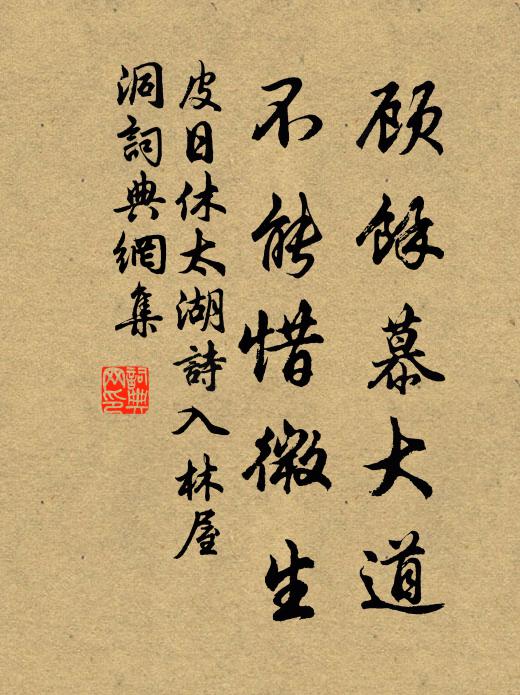 顾餘慕大道
不能惜微生
皮日休太湖詩入林屋
洞詞典網集
詞典
网印